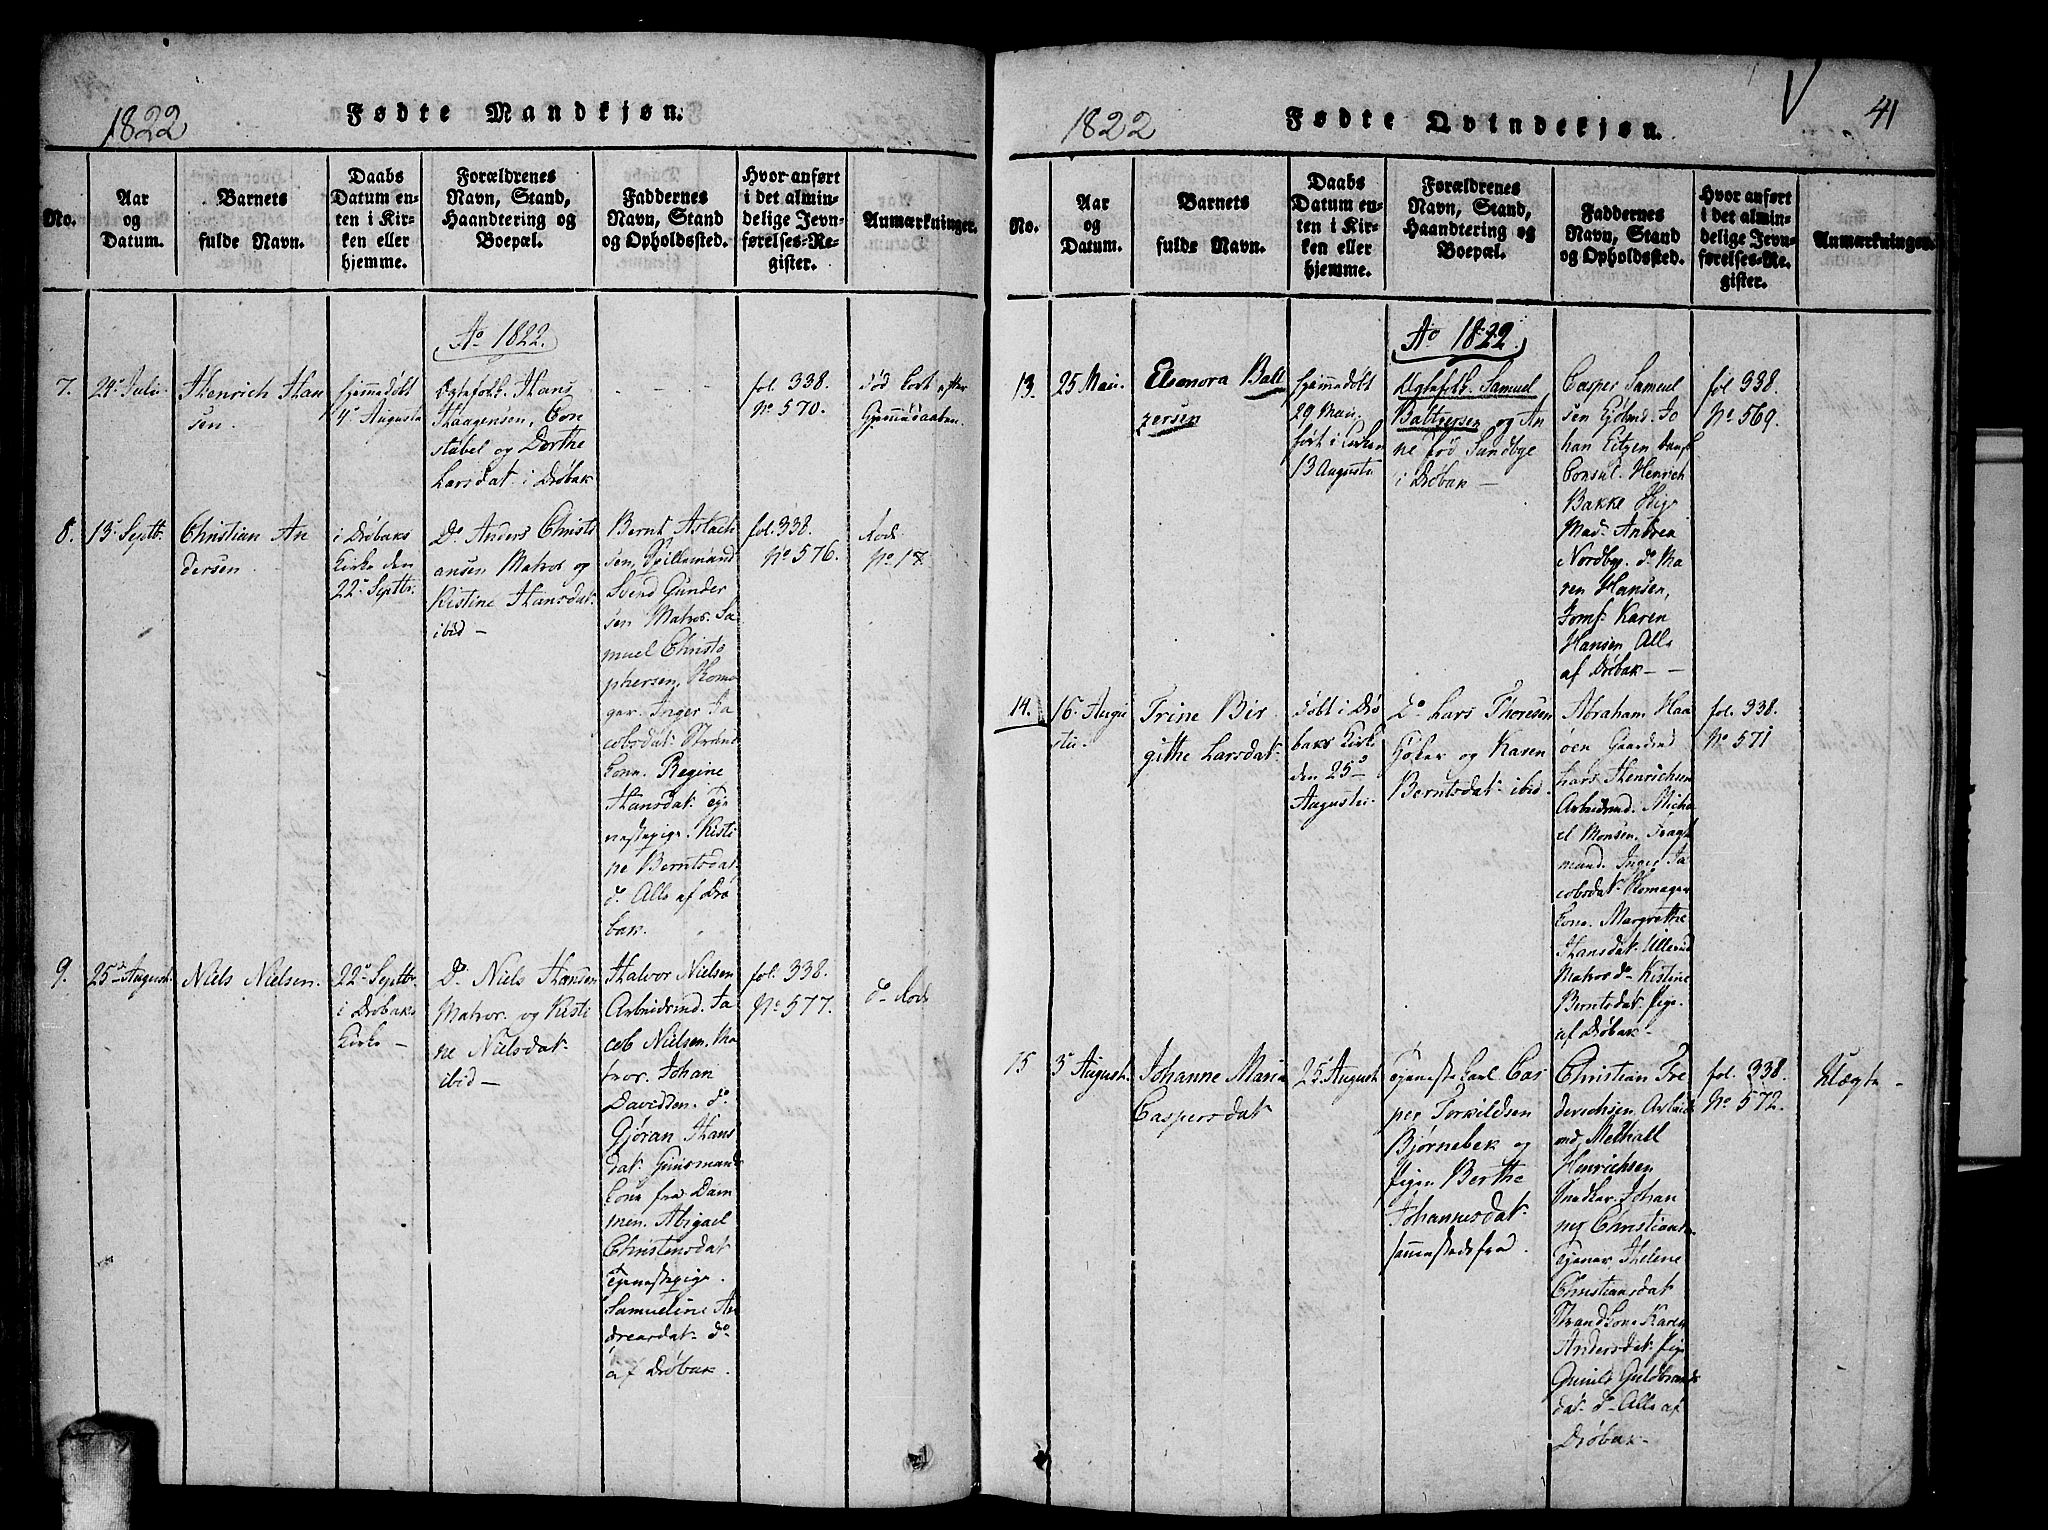 1822
Fødte Mandkjøn.
No.
Aar
og
Datum.
Barnets
fulde Navn.
Daabs
Datum en-
ten i Kir-
ken eller
hjemme.
Forældrenes
Navn, Stand,
Haandtering og
Boepæl.
Faddernes
Navn, Stand
og Opholdssted.
Hvor anført
i det almin-
delige Jevn-
førelses-Re-
gister.
Anmærkninger.
Ao 1822.
7.
24 Julii
Henrich Han
sen.
hjemmedøbt
4 Augusti
Ægtefolk. Hans
Haagensen, Con
stabel og Dorthe
Larsdat. i Drøbak
fol. 338.
No 570.
død kort efter
Hjemmedaaben.
8.
13 Septb.
Christian An
dersen
i Drøbaks
Kirke den
22 Septbr.
Do Anders Christi
ansen Matros og
Kistine Hansdat.
ibid —
Bernt Aslach
sen,
Svend Gunder
sen Matros. Sa
muel Christo
phersen,
Inger Ja
cobsdat. Strand
kone. Regine
Hansdat. Tje
nestepige. Kisti
ne Berntsdat.
do. Alle af Drø
bak.
fol. 338.
No 576.
No 17
9.
25 August.
Niels Nielsen.
22 Septbr.
i Drøbaks
Kirke —
Do Niels Hansen
Matros. og Kisti
ne Nielsdat.
ibid —
Halvor Nielsen
Arbeidsmd. Ja
cob Nielsen. Ma
tros. Johan
Davidsen. do
Gjøran Hans
dat.
kone fra Dam
men. Abigael
Christensdat
Tjenestepige.
Samueline An
dreasdat. do
af Drøbak.
fol. 338.
No 577.
do
1822
Fødte Qvindekjøn.
41
No.
Aar
og
Datum.
Barnets
fulde Navn.
Daabs
Datum en-
ten i Kir-
ken eller
hjemme.
Forældrenes
Navn, Stand,
Haandtering og
Boepæl.
Faddernes
Navn, Stand
og Opholdssted.
Hvor anført
i det almin-
delige Jevn-
førelses-Re-
gister.
Anmærkninger.
Ao 1822.
13.
25 Mai.
Eleonora Balt
zersen
hjemmedøbt
29 Mai,
ført i Kirken
13 Augusti
Ægtefolk. Samuel
Baltzersen og An
ne fød Sandbye
i Drøbak —
Casper Samuel
sen Jo
han Eitzen
Consul. Henrich
Bakke
Mad. Andrea
Nordbye. do Ma
ren Hansen,
Jomf. Karen
Hansen Alle
af Drøbak —
fol 338
No 569.
14.
16 Augu
sti.
Trine Bir
githe Larsdat.
døbt i Drø
baks Kirke
den 25
Augusti.
Do Lars Thoresen
og Karen
Berntsdat. ibid.
Abraham Haa
øen
Lars Henrichsen
Arbeidsmd. Micha
el Monsen.
mand. Inger Ja
cobsdat.
kone. Margrethe
Hansdat.
Matros do Kistine
Berntsdat. Pige.
af Drøbak —
fol. 338.
No 571
15
3 August.
Johanne Maria
Caspersdat
25 August
Tjeneste Karl Cas
per Torkildsen
Bjørnebek og
Pigen Berthe
Johannesdat.
sammestedsfra.
Christian Fre
derichsen, Arbeids
md.
Henrichsen
Snedker. Johan
nes Christians.
Tjener. Helene
Christiansdat
Strandkone Karen
Andersdat. Pige
Gunild Guldbrands
dat. do Alle af
Drøbak —
fol. 338.
No 572.
Uægte —